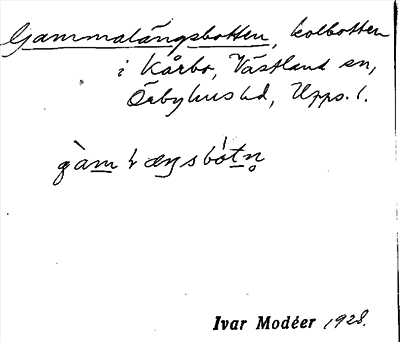 Gammalängsbotten, kolbotten
i Kårbo, Västland sn,
Örbyhus hd, Upps. l.
Ivar Modéer 1928.